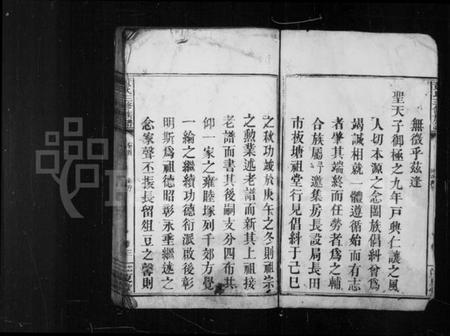 無徵乎茲逢
聖天子御極之九年戸興仁讓之風
人切本源之念闔族倡糾曾爲
竭誠相就一體遵循始而有志
者肇其端終而任勞者爲之輔
合族屬 邀集房長設局長田
市坂塘祖堂行見倡糾于己巳
之秋功竣於庚午之冬則祖宗
之勳業述老譜而新其上祖接
老譜而書其後嗣支分四布其
仰一家之雍睦塚列千郊方覺
一綸之繼續功德衍派啟後彰
明斯爲祖德昭彰永垂繼述之
念家聲丕振長留俎豆之馨則